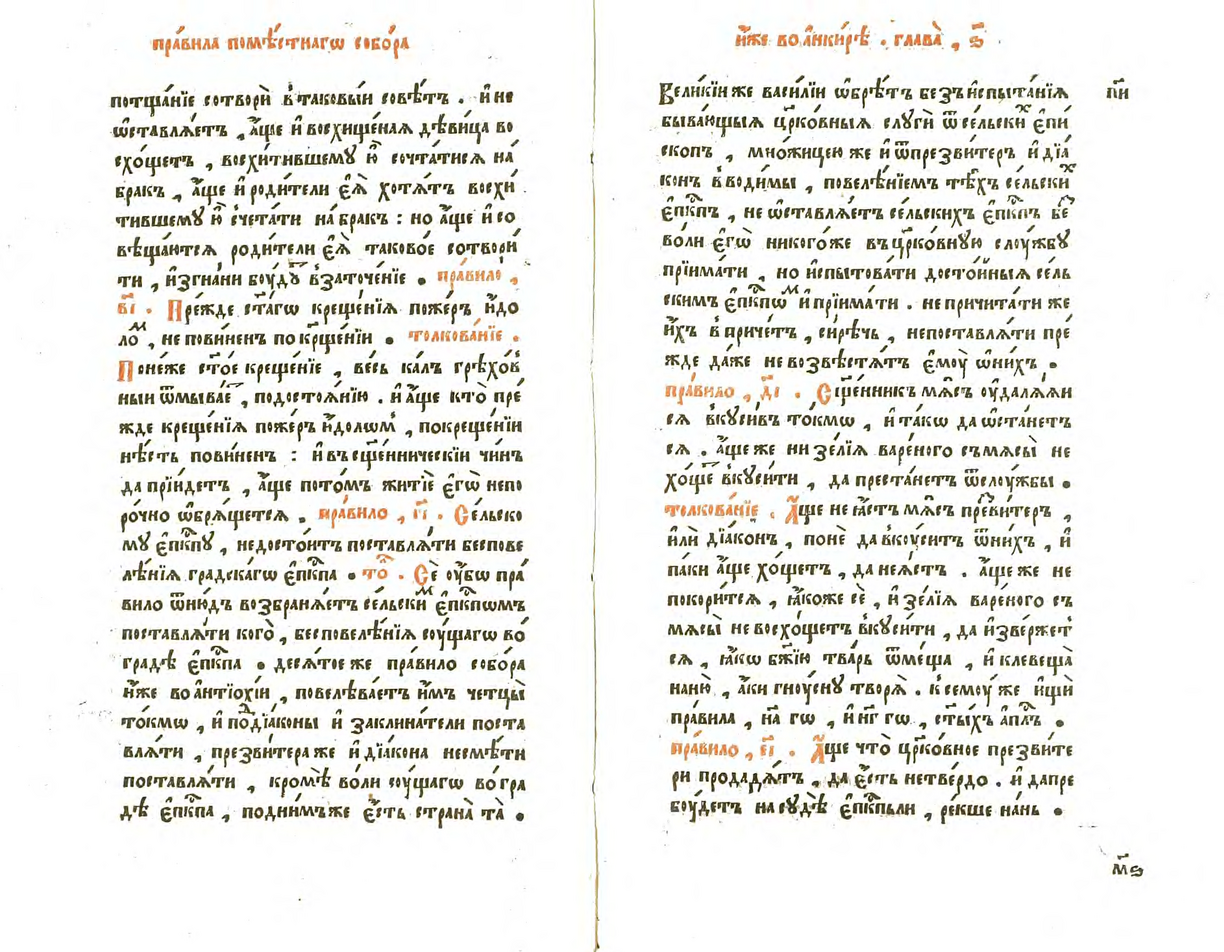 пра́вила помѣ́стнагѡ собо́ра
потща́нїе сотворѝ в҆таковы́и совѣ́тъ . и҆ не
ѡ҆ставлѧ́етъ , а҆́ще и҆ восхище́наѧ дѣви́ца во
схо́щетъ , восхити́вшему ю҆̀ сочта́тисѧ на́
бракъ , а҆́ще и҆ роди́тели є҆ѧ̀ хотѧ́тъ восхи́
тившему ю҆̀ счета́ти на́бракъ : но а҆́ще и҆ со
вѣща́ютсѧ роди́тели є҆ѧ̀ таково́е сотвори́
ти , и҆згна́ни бѹ́дꙋⷮ в҆заточе́нїе . пра́вило ,
в҃і . Пре́жде ст҃а́гѡ креще́нїѧ пожє́ръ и҆́до
лоⷨ , не пови́ненъ по кр҃ще́нїи . толкова́нїе .
Поне́же ст҃о́е креще́нїе , ве́сь ка́лъ грѣхо́в
ныи ѿмыва́еⷮ , подостоѧ́нїю . и҆ а҆́ще кто̀ пре́
жде креще́нїѧ пожє́ръ и҆́долѡм , покреще́нїи
нѣ́сть пови́ненъ : и҆ въ сще҃́нническїи чи́нъ
да прїи́детъ , а҆́ще пото́мъ житїѐ є҆гѡ̀ непо
ро́чно ѡ҆брѧ́щетсѧ . пра́вило , г҃і . Се́льско
му є҆пⷭ҇кпу , недосто́итъ поставлѧ́ти беспове
лѣ́нїѧ градска́гѡ є҆пⷭ҇кпа . тоⷧ҇ . Сѐ ѹ҆́бѡ пра́
вило ѿню́дъ возбранѧ́етъ се́льскиⷨ є҆пⷭ҇кпѡмъ
поставлѧ́ти кого̀ , бесповелѣ́нїѧ сѹ́щагѡ во́
градѣ є҆пⷭ҇кпа . десѧ́тое же пра́вило собо́ра
и҆́же во а҆нтїохі́и , повелѣва́етъ и҆̀мъ четцы̀
то́кмѡ , и҆ по́дїаконы и҆ заклина́тели поста
влѧ́ти , презви́тера же и҆ дїа́кона несмѣ́ти
поставлѧ́ти , кромѣ̀ во́ли сѹ́щагѡ во́гра
дѣ є҆пⷭ҇кпа , подни́мъже є҆́сть страна̀ та̀ .
и҆́же во а҆нки́рѣ . глава̀ , ѕ҃
Вели́кїи же васи́лїи ѡ҆брѣ́тъ без̾испыта́нїѧ
быва́ющыѧ цр҃ко́вныѧ слугѝ ѿ се́льскиⷯ є҆пи́
скопъ , мно́жицею же и҆ ѿпрезви́теръ и҆ дїа́
конъ в҆води́мы , повелѣ́нїемъ тѣ́хъ се́льскиⷯ
є҆пⷭ҇кпъ , не ѡ҆ставлѧ́етъ се́льскихъ є҆пⷭ҇кпъ беⷥ
во́ли є҆гѡ̀ никого́же въ цр҃ко́вную слѹ́жбу
прїима́ти , но и҆спытова́ти досто́йныѧ се́ль
скимъ є҆пⷭ҇кпѡⷨ и҆ прїима́ти . не причита́ти же
и҆́хъ в҆ при́четъ , си́рѣчь , непоставлѧ́ти пре́
жде да́же не возвѣстѧ́тъ є҆мѹ̀ ѡ҆ни́хъ .
пра́вило , д҃і . Сщ҃е́нникъ мѧ́съ ѹ҆далѧ́ѧи
сѧ вкуси́въ то́кмѡ , и҆ та́кѡ да ѡ҆ста́нетъ
сѧ . а҆́ще же ни зе́лїѧ варе́ного съ мѧсы̀ не
хо́щеⷮ вкуси́ти , да преста́нетъ ѿслѹ́жбы .
толкова́нїе . А҆́ще не ꙗ҆́стъ мѧ́съ преⷥви́теръ ,
и҆лѝ дїа́конъ , понѐ да вкѹ́ситъ ѿни́хъ , и҆
па́ки а҆́ще хо́щетъ , да неꙗ҆́стъ . а҆́ще же не
покори́тсѧ , ꙗ҆́коже сѐ , и҆ зе́лїѧ варе́ного съ
мѧсы̀ не восхо́щетъ вкуси́ти , да и҆зве́ржет
сѧ , ꙗ҆́кѡ бж҃їю тва́рь ѿме́ща , и҆ клевеща̀
наню̀ , а҆́ки гно́усну творѧ̀ . к семѹ̀ же и҆щѝ
пра́вила , н҃а гѡ , и҆ н҃г гѡ , ст҃ы́хъ а҆пⷭ҇лъ .
пра́вило , є҃і . А҆́ще что̀ цр҃ко́вное презви́те
ри продадѧ́тъ , да є҆́сть нетве́рдо . и҆ дапре
бѹ́детъ на судѣ̀ є҆пⷭ҇кпьли , ре́кше на́нь .
п҃и
м҃ѕ